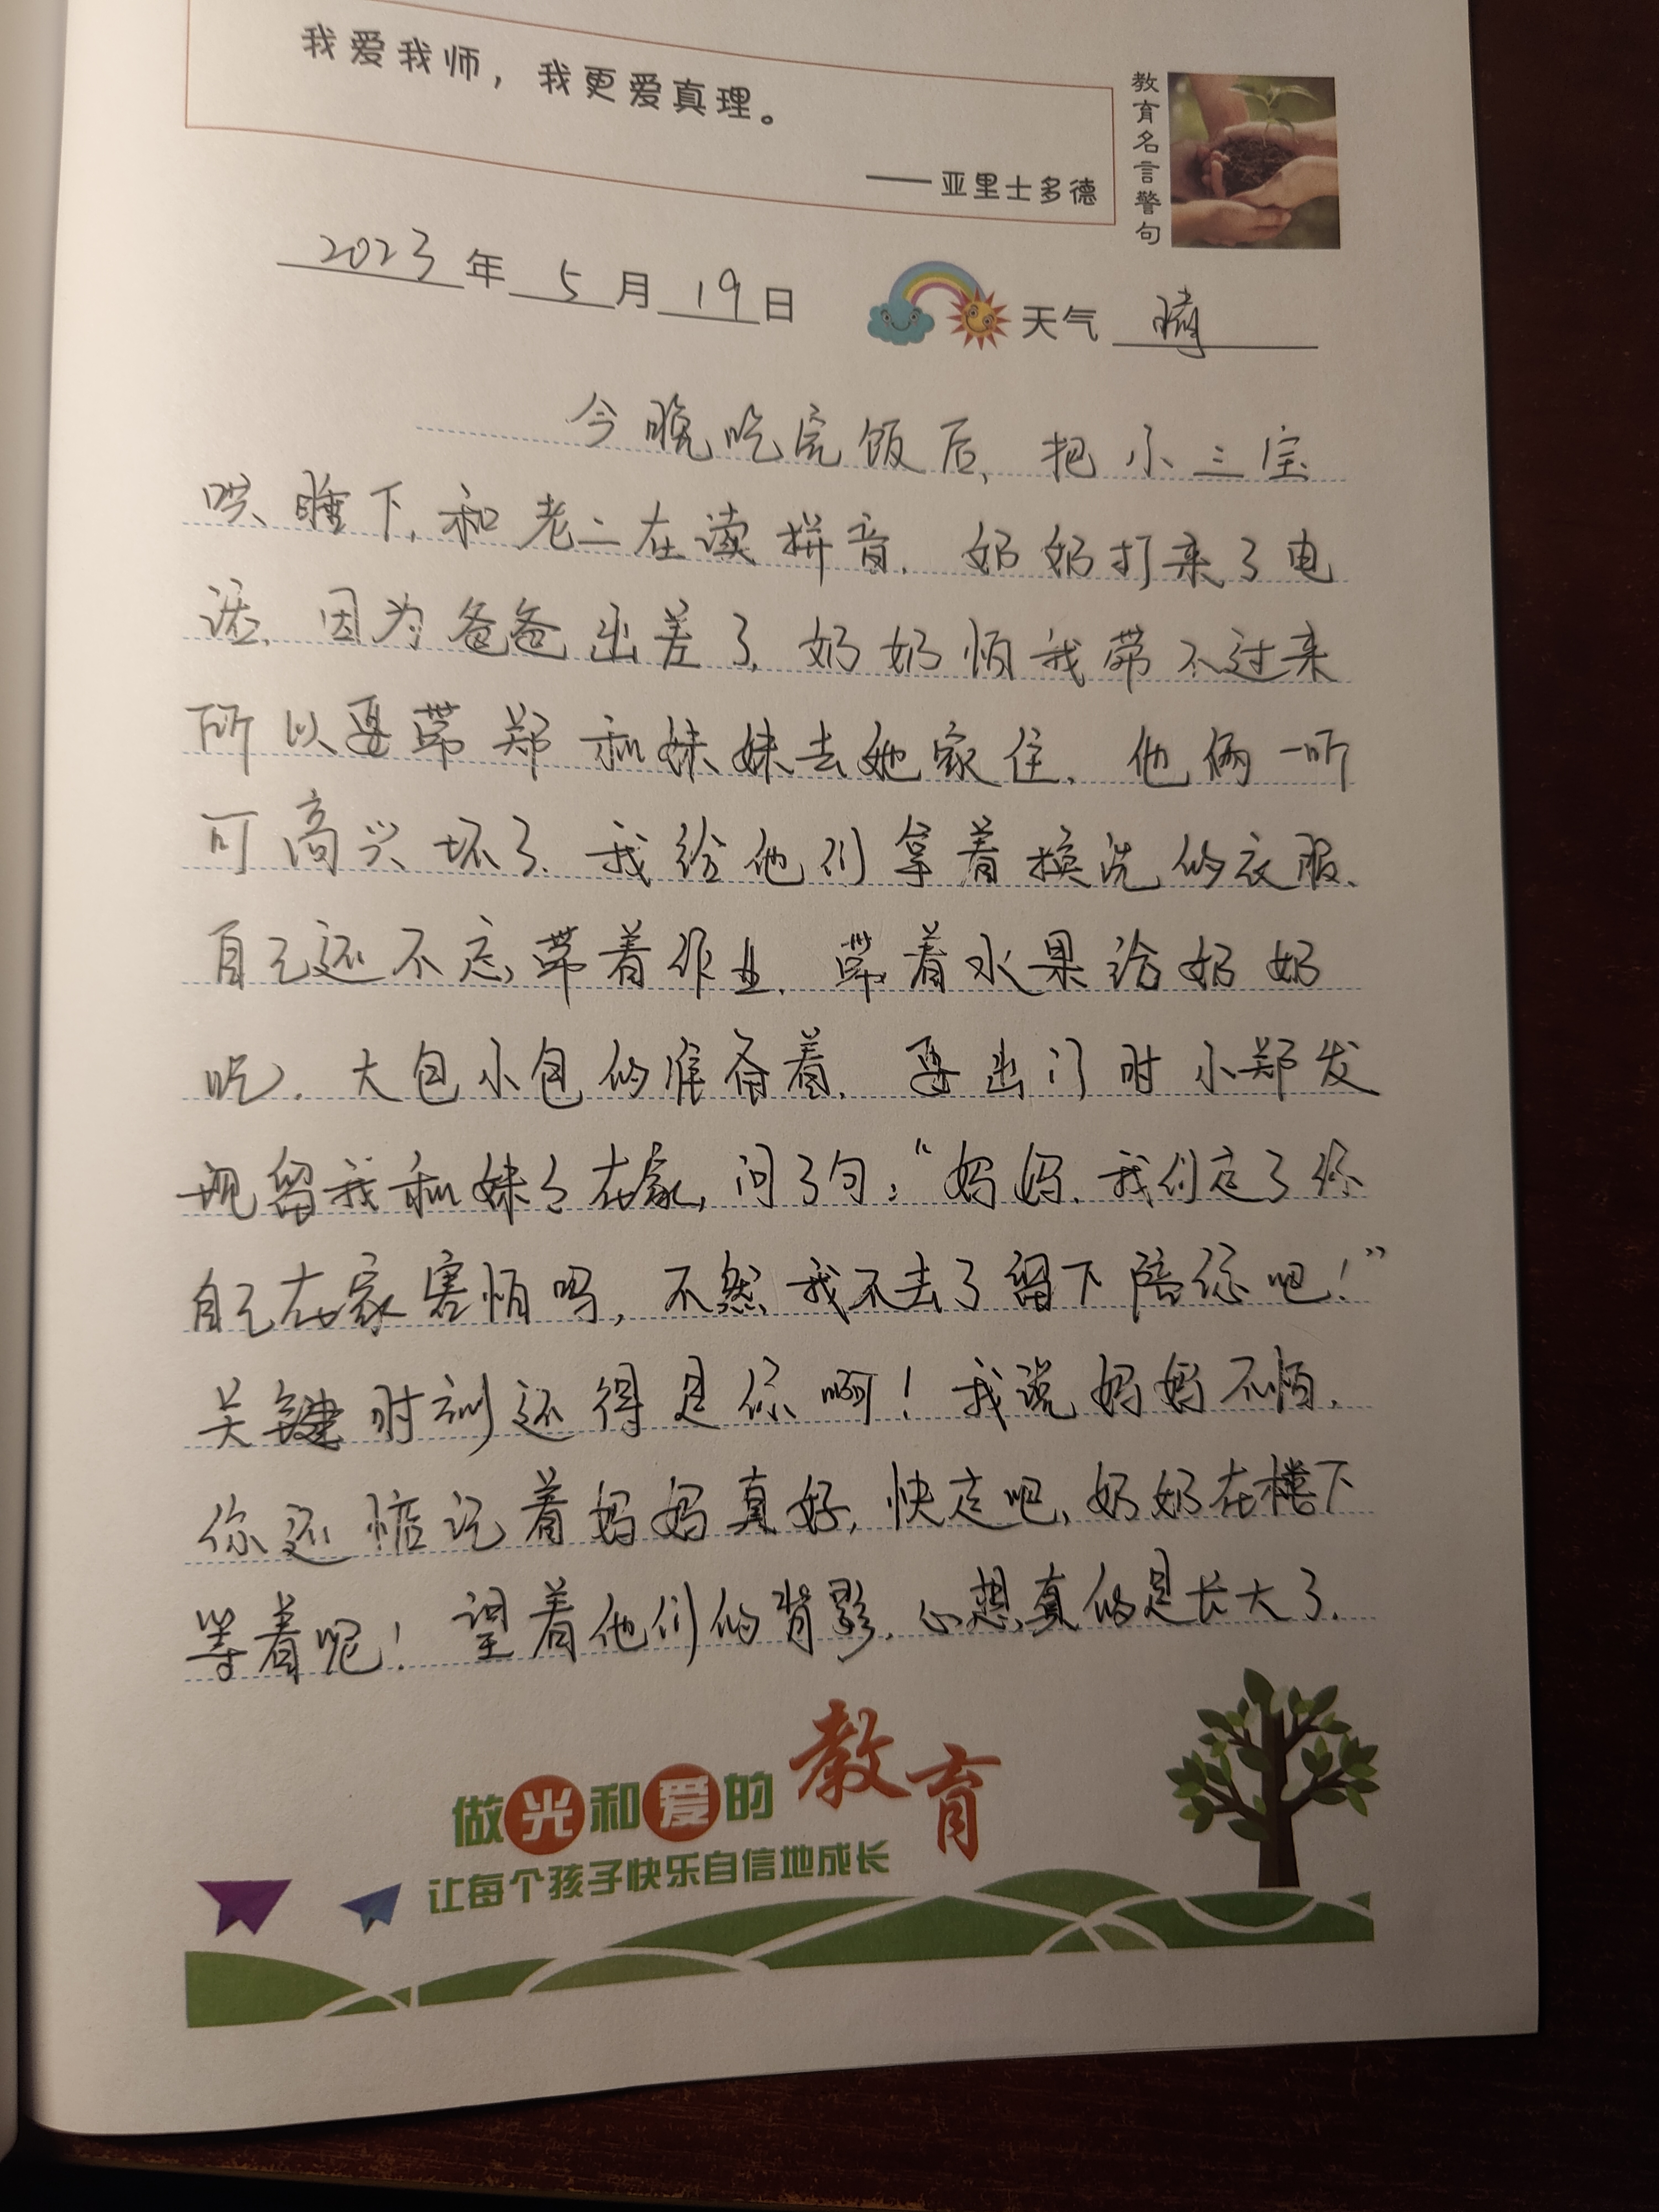 我爱我师，我更爱真理。
——亚里士多德
教育名言警句
2023年5月19日 天气 晴
今晚吃完饭后，把小三宝
哄睡下，和老二在读拼音，奶奶打来了电
话，因为爸爸出差了，奶奶怕我带不过来
所以要带郑和妹妹去她家住，他俩一听
可高兴坏了，我给他们拿着换洗的衣服、
自己还不忘带着作业，带着水果给奶奶
吃，大包小包的准备着，要出门时小郑发
现留我和妹妹在家，问了句：“妈妈，我们走了你
自己在家害怕吗，不然我不去了留下陪你吧！”
关键时刻还得是你啊！我说妈妈不怕，
你还惦记着妈妈真好，快走吧，奶奶在楼下
等着呢！望着他们的背影，心想真的是长大了.
做光和爱的教育
让每个孩子快乐自信地成长